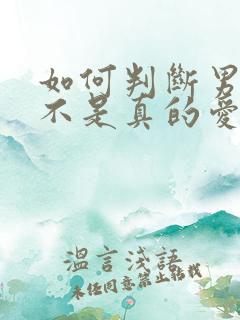 如何判斷男
不是真的愛
溫言淺語
未经同意禁止转载